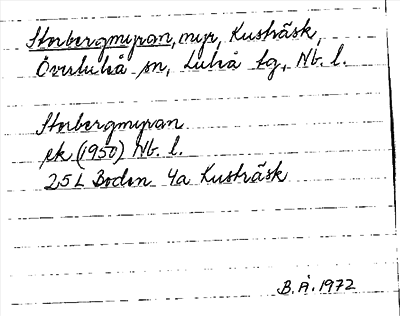 Storbergmyran, myr, Kusträsk,
Överluleå sn, Luleå tg, Nb. l.
Storbergmyran
ek (1950) Nb. l.
25 L Boden 4a Kusträsk
B. Å. 1972